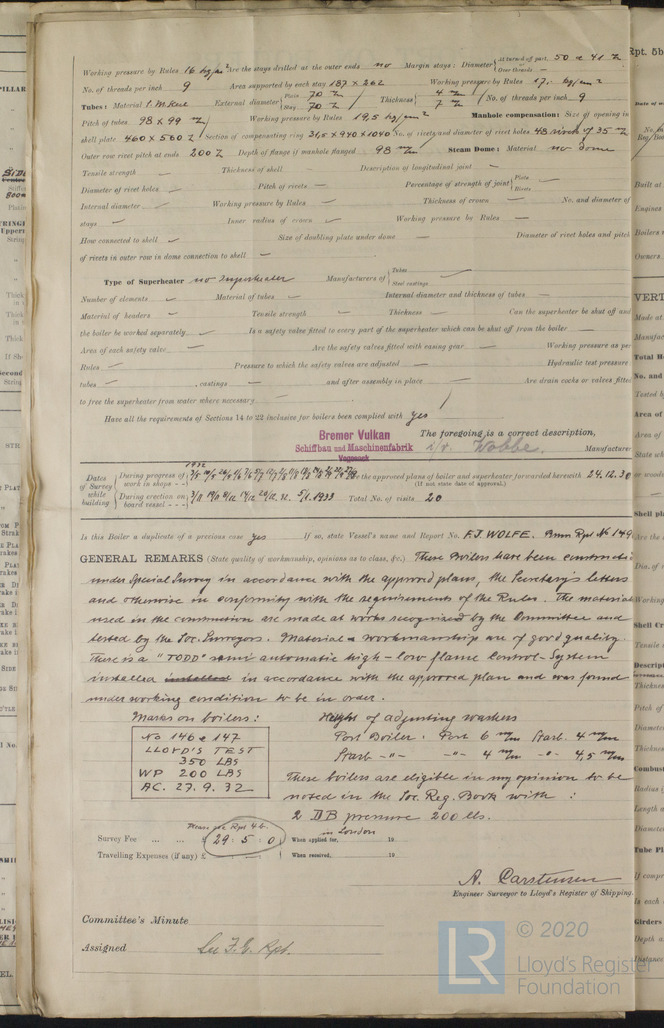 Working pressure by Rules 16 kg/cm² Are the stays drilled at the outer ends no Margin stays: Diameter { At turned off part, 50 & 41 Over threads —
No. of threads per inch 9 Area supported by each stay 187 x 262 Working pressure by Rules 17, kg/cm²
Tubes: Material External diameter { Plain 70 Stay 70 Thickness { 4 7 No. of threads per inch 9
Pitch of tubes 98 x 99 Working pressure by Rules 19,5 kg/cm² Manhole compensation: Size of opening in
shell plate 460 x 560 Section of compensating ring No. of rivets and diameter of rivet holes 48 rivets of 35
Outer row rivet pitch at ends 200 Depth of flange if manhole flanged 98 Steam Dome: Material no dome
Tensile strength — Thickness of shell — Description of longitudinal joint —
Diameter of rivet holes — Pitch of rivets — Percentage of strength of joint { Plate Rivets
Internal diameter Working pressure by Rules Thickness of crown No. and diameter of
stays Inner radius of crown Working pressure by Rules —
How connected to shell Size of doubling plate under dome — Diameter of rivet holes and pitch
of rivets in outer row in dome connection to shell
Type of Superheater no superheater Manufacturers of { Tubes Steel castings
Number of elements Material of tubes Internal diameter and thickness of tubes —
Material of headers Tensile strength — Thickness — Can the superheater be shut off and
the boiler be worked separately Is a safety valve fitted to every part of the superheater which can be shut off from the boiler —
Area of each safety valve Are the safety valves fitted with easing gear — Working pressure as per
Rules — Pressure to which the safety valves are adjusted — Hydraulic test pressure
tubes , castings — and after assembly in place — Are drain cocks or valves fitted
to free the superheater from water where necessary
Have all the requirements of Sections 14 to 22 inclusive for boilers been complied with yes
Bremer Vulkan The foregoing is a correct description,
Schiffbau und Maschinenfabrik Manufacturer
Vegesack
Dates of Survey while building { During progress of work in shops - - 1932 the approved plans of boiler and superheater forwarded herewith 24.12.30
(If not state date of approval.)
During erection on board vessel - - - 5/1.1933 Total No. of visits 20
Is this Boiler a duplicate of a previous case yes If so, state Vessel's name and Report No. F.J. WOLFE. Brm Rpt No 149
GENERAL REMARKS (State quality of workmanship, opinions as to class, &c.) These Boilers have been constructe
under Special Survey in accordance with the approved plans, the Secretary's letters
and otherwise in conformity with the requirements of the Rules. The material
used in the construction are made at works recognized by the Committee and
tested by the Soc. Surveyors. Material & workmanship are of good quality.
There is a "TODD" semi automatic high-low flame Control-System
installed installed in accordance with the approved plan and was found
under working condition to be in order.
Marks on boilers: Height of adjusting washers
No 146 & 147 Port Boiler: Port 6 m/m Starb. 4 m/m
LLOYD'S TEST Starb -"- -"- 4 m/m -"- 4,5 m/m
350 LBS
WP 200 LBS These boilers are eligible in my opinion to be
A.C. 27.9.32 noted in the Soc. Reg. Book with:
2 DB pressure 200 lbs.
Please see Rpt 4b. in London
Survey Fee ... ... £ 29 : 5 : 0 When applied for, 19
Travelling Expenses (if any) £ : : When received, 19
A. Carstensen
Engineer Surveyor to Lloyd's Register of Shipping.
Committee's Minute
Assigned See F.E. Rpt.
LR © 2020
Lloyd's Register
Foundation